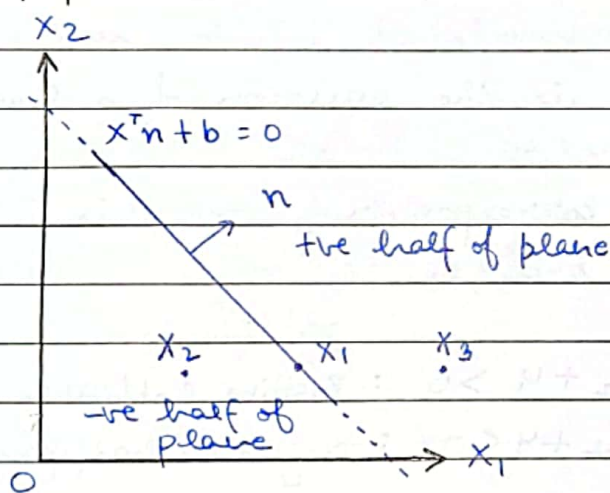 X2
xᵀn + b = 0
n
+ve half of plane
X2
X1
X3
-ve half of
plane
X1
O